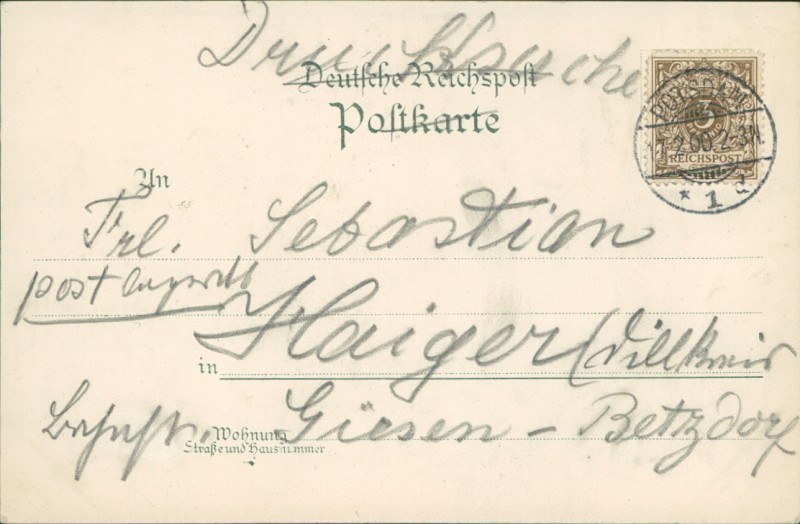 Drucksache
Deutsche Reichspost
Postkarte
POTSDAM
2.00.2-3N.
* 1 d
3
REICHSPOST
An
Frl. Sebastian
post
Haiger (Dillkreis
in
Giesen - Betzdorf
Wohnung
Straße und Hausnummer